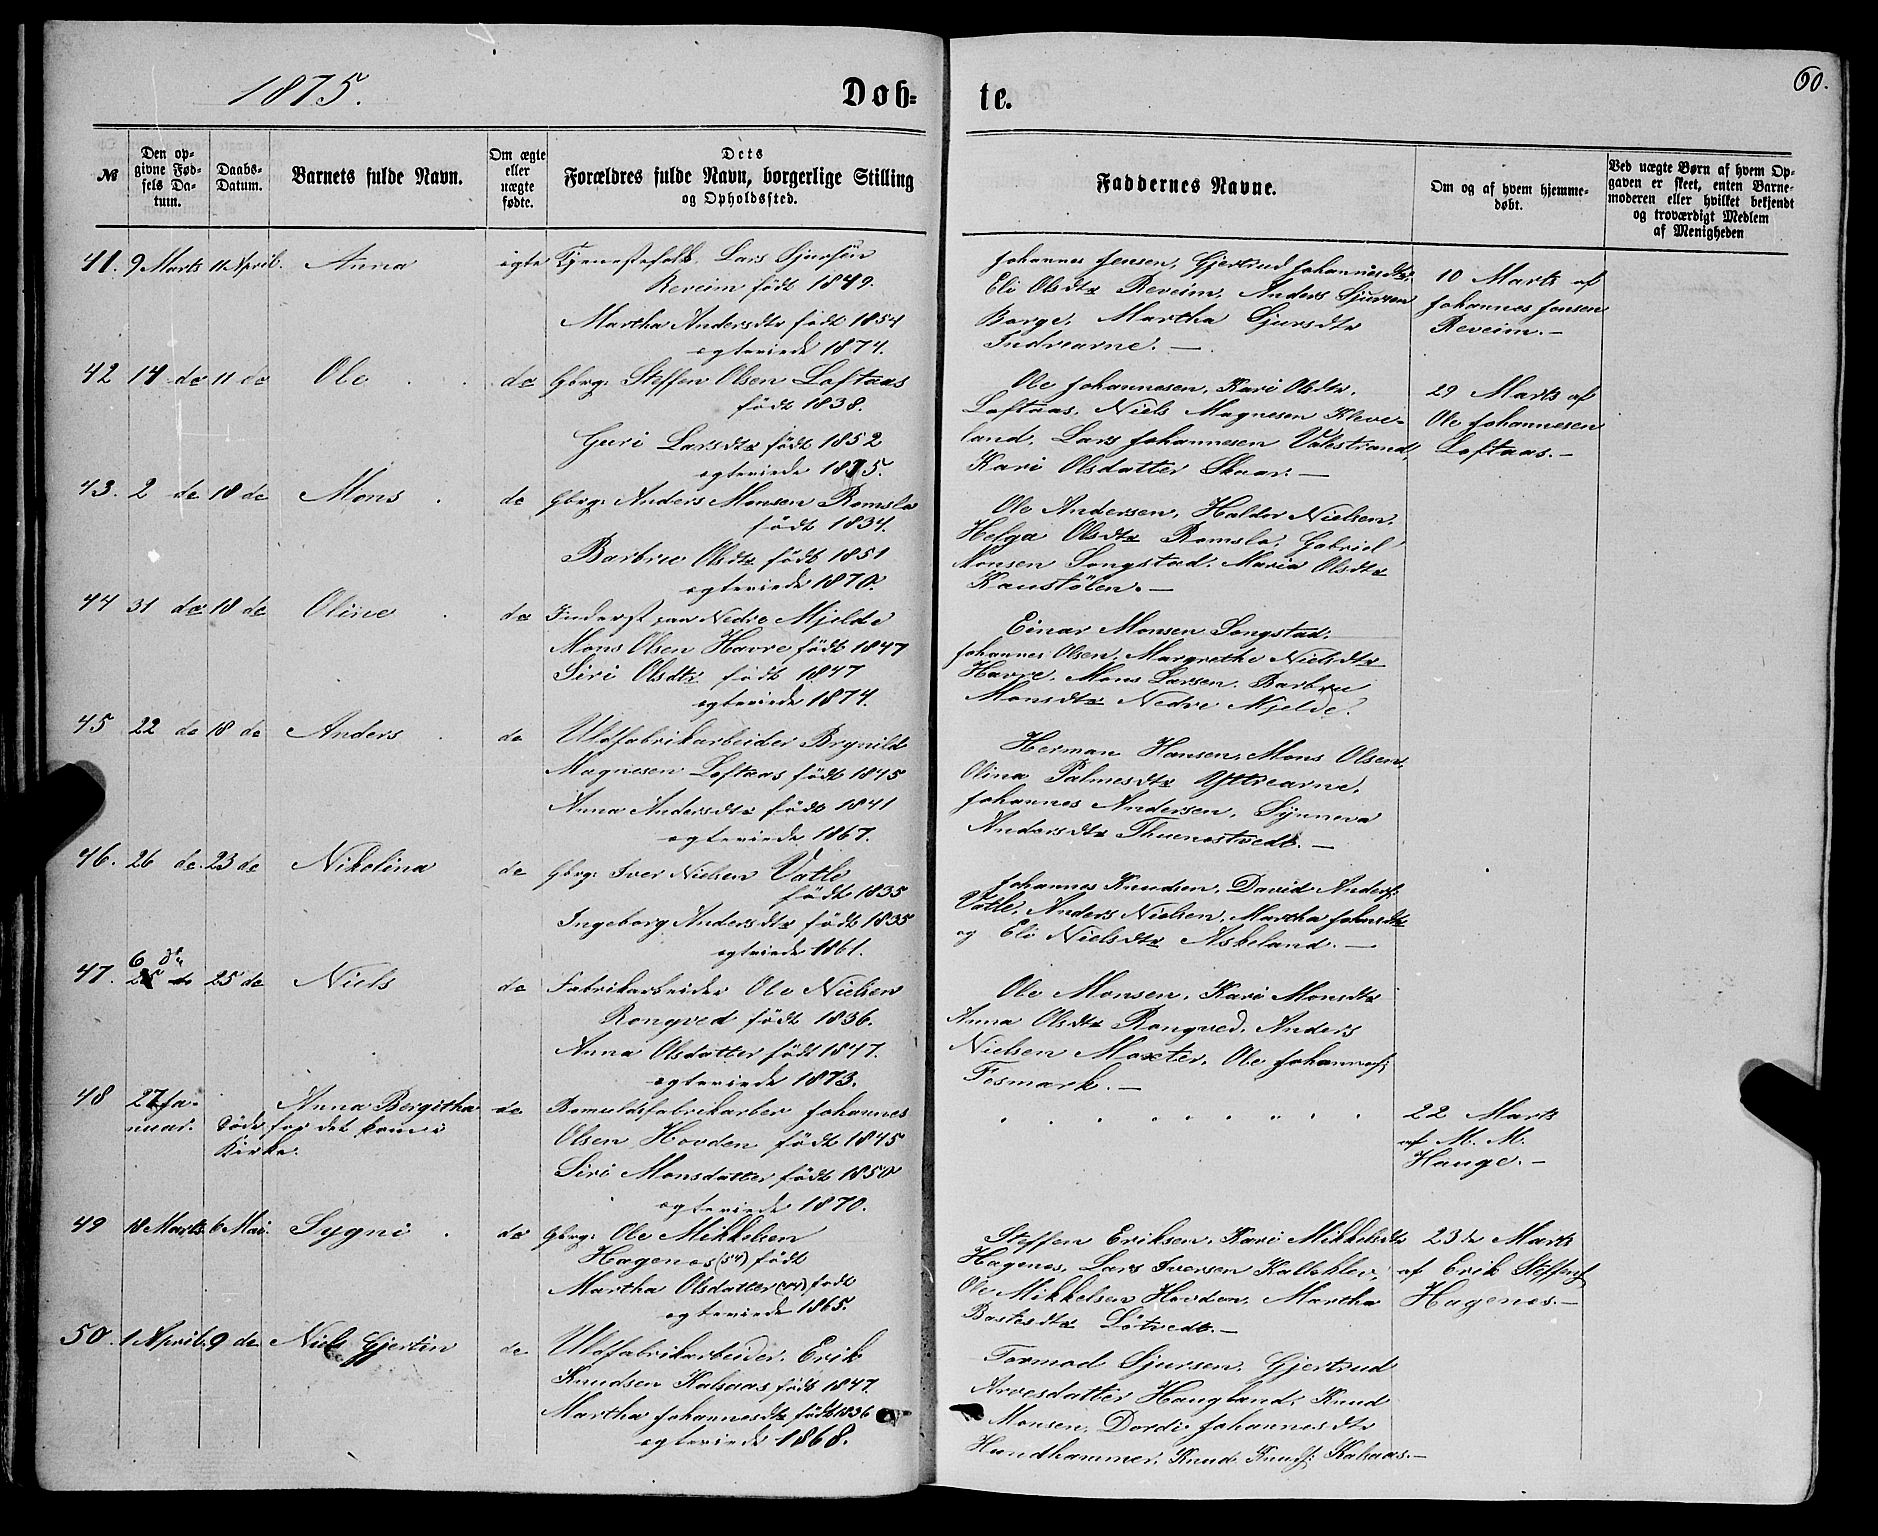 1875.
Døb=
te.
60.
№
Den op-
givne Fød-
sels Da-
tum.
Daabs-
Datum.
Barnets fulde Navn.
Om ægte
eller
uægte
fødte.
Dets
Forældres fulde Navn, borgerlige Stilling
og Opholdssted.
Faddernes Navne.
Om og af hvem hjemme-
døbt.
Ved uægte Børn af hvem Op-
gaven er skeet, enten Barne-
moderen eller hvilket bekjendt
og troværdigt Medlem
af Menigheden
41. 9 Marts 11 April. Anna ægte Tjenestefolk, Lars Sjursen
Reveim født 1849.
Martha Andersdtr født 1854
egteviede 1874.
Johannes Jensen, Gjertrud Johannesdtr,
Eli Olsdtr Reveim, Anders Sjursen
Borge, Martha Sjursdtr
Indrearne. —
10 Marts af
Johannes Jensen
Reveim. —
42 14 de 11 de Ole do Gbrg: Steffen Olsen Loftaas
født 1838.
Guri Larsdtr født 1852
egteviede 1875.
Ole Johannesen, Kari Olsdtr.
Loftaas, Niels Magnesen Kleve-
land, Lars Johannesen Valestrand,
Kari Olsdatter Skaar. —
29 Marts af
Ole Johannesen
Loftaas. —
43. 2 de 18 de Mons do Gbrg: Anders Monsen Romslo
født 1834.
Barbru Olsdtr født 1851
egteviede 1870.
Ole Andersen, Haldor Nielsen,
Helga Olsdtr Romslo, Gabriel
Monsen Songstad, Maria Olsdtr
Kaustølen. —
44 31 de 18 de Oline do Inderst paa Nedre Mjelde
Mons Olsen Havre født 1847
Siri Olsdtr født 1847
egteviede 1874.
Einar Monsen Songstad,
Johannes Olsen, Margrethe Nielsdtr
Havre, Mons Larsen, Barbru
Monsdtr Nedre Mjelde.
45 22 de 18 de Anders do Uldfabrikarbeider Brynild
Magnesen Loftaas født 1845
Anna Andersdtr født 1841
egteviede 1867.
Herman Hansen, Mons Olsen,
Olina Palmesdtr Yttrearne,
Johannes Andersen, Synneva
Andersdtr Thunestvedt. —
46. 26 de 23 de Nikolina do Gbrg: Iver Nielsen Vatle
født 1835
Ingeborg Andersdtr født 1835
egteviede 1861.
Johannes Knudsen, David Anders:
Vatle, Anders Nielsen, Martha Johnsdtr
og Eli Nielsdtr Askeland. —
6 de
47. 25 de Niels do Fabrikarbeider Ole Nielsen
Rongved født 1836.
Anna Olsdatter født 1847.
egteviede 1873.
Ole Monsen, Kari Monsdtr
Anna Olsdtr Rongved, Anders
Nielsen Moxter, Ole Johannes:
Fosmark. —
48 27 Ja- Anna Bergitha do Bomuldsfabrikarber Johannes
nuar. Døde før det kom i
Kirke.
Olsen Hovden født 1845
Siri Monsdatter født 1850
egteviede 1870.
22 Marts
af M. M.
Hauge. —
49 18 Marts 6 Mai. Sygni do Gbrg: Ole Mikkelsen
Hagenes (54) født
Martha Olsdatter (44) født
egteviede 1865.
Steffen Eriksen, Kari Mikkelsdtr
Hagenes, Lars Iversen Kalleklev,
Ole Mikkelsen Hovden, Martha
Løtvedt. —
23de Marts
af Erik Steffens:
Hagenes. —
50. 1 April. 9 de Nils Gjertin do Uldfabrikarbeider, Erik
Knudsen Kalsaas født 1847.
Martha Johannesdtr født 1836
egteviede 1868.
Tormod Sjursen, Gjertrud
Arvesdatter Haugland, Knud
Monsen, Dordi Johannesdtr
Hundhammer, Knud Knuds: Kalsaas. —